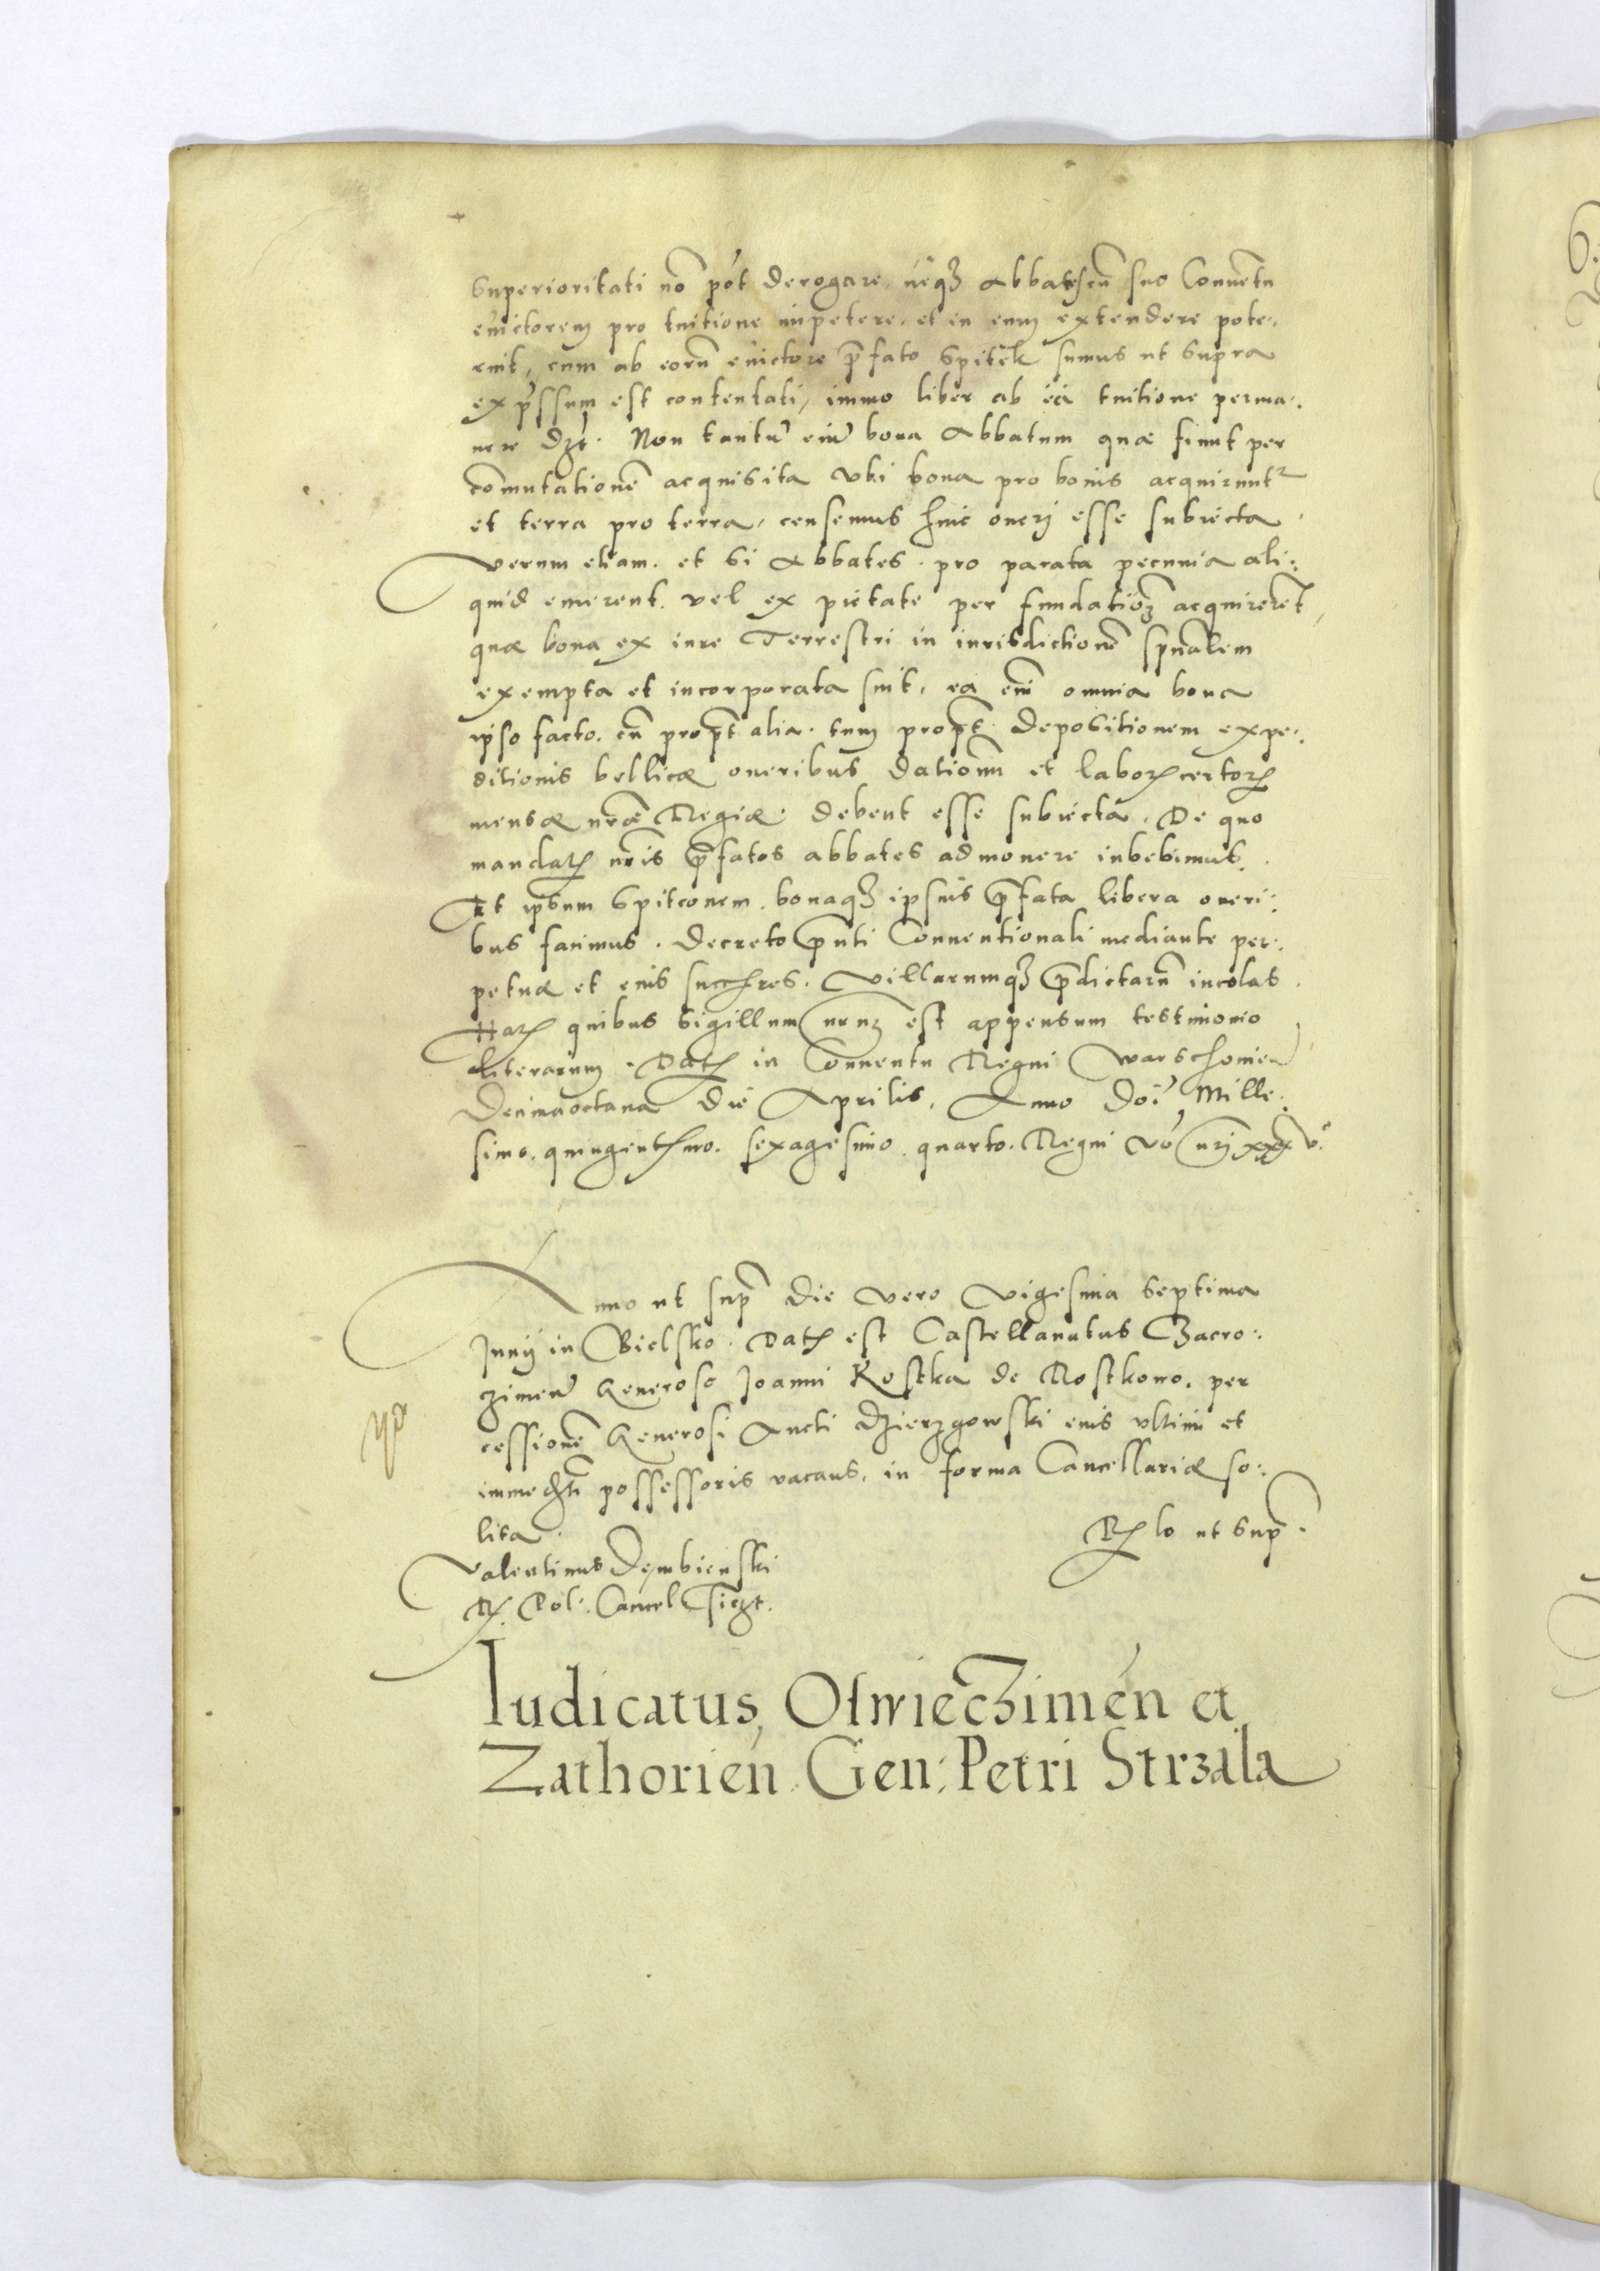 Superioritati nõ põt derogare, neqꝫ Abbates cũ suo Conuẽtu
euictorem pro tuitione impetere, et in eum extendere pote:
rint, cum ab eorũ euictore p̃fato Spitek sumus ut supra
exp̃ssum est contentati, immo liber ab ea tuitione perma:
nere dẽt. Non tantũ enĩ bona Abbatum quæ fiunt per
cõmutationẽ acquisita Vbi bona pro bonis acquirunt᷑
et terra pro terra, censemus huic oneri esse subiecta
Verum etiam. et Si Abbates. pro parata pecunia ali:
quid emerent. vel ex pietate per fundationẽ acquirerẽt,
quæ bona ex iure Terrestri in iurisdictionẽ spũalem
exempta et incorporata sint, ea enĩ omnia bona
ipso facto. cũ propt̃ alia. tum propt̃ depositionem expe:
ditionis bellicæ oneribus dationũ et laborꝝ certorꝝ
mensæ nr̃æ Regiæ. debent esse subiecta. De quo
mandatꝭ nr̃is p̃fatos abbates admonere iubebimus.
Et ipsum Spitconem. bonaqꝫ ipsius p̃fata libera oneri:
bus facimus. Decreto p̃nti Conuentionali mediante per:
petuæ et eius succres. Villarumqꝫ p̃dictarũ incolas.
Harꝝ quibus Sigillum nrum est appensum testimonio
literarum. Datꝭ in Conuentu Regni Warschouien̄
Decimaoctaua die Aprilis. Anno Doĩ Mille:
simo. quingentesimo. sexagesimo. quarto. Regni vo nri xxxv.°
Anno ut sup̃ die vero Vigesima Septima
Junij in Bielsko. Datꝭ est Castellanatus Czacro:
zimen̄ Generoso Joanni Kostka de Rostkowo. per
cessionẽ Generosi Aucti Dzierzgowski eius vltimi et
immedti possessoris vacans. in forma Cancellariæ so:
lita.
Rꝭlo ut Sup̃.
Valentinus Dembienski
R. Pol. Cancel
Iudicatus Oswieczimen et
Zathorien. Gen: Petri Strzala